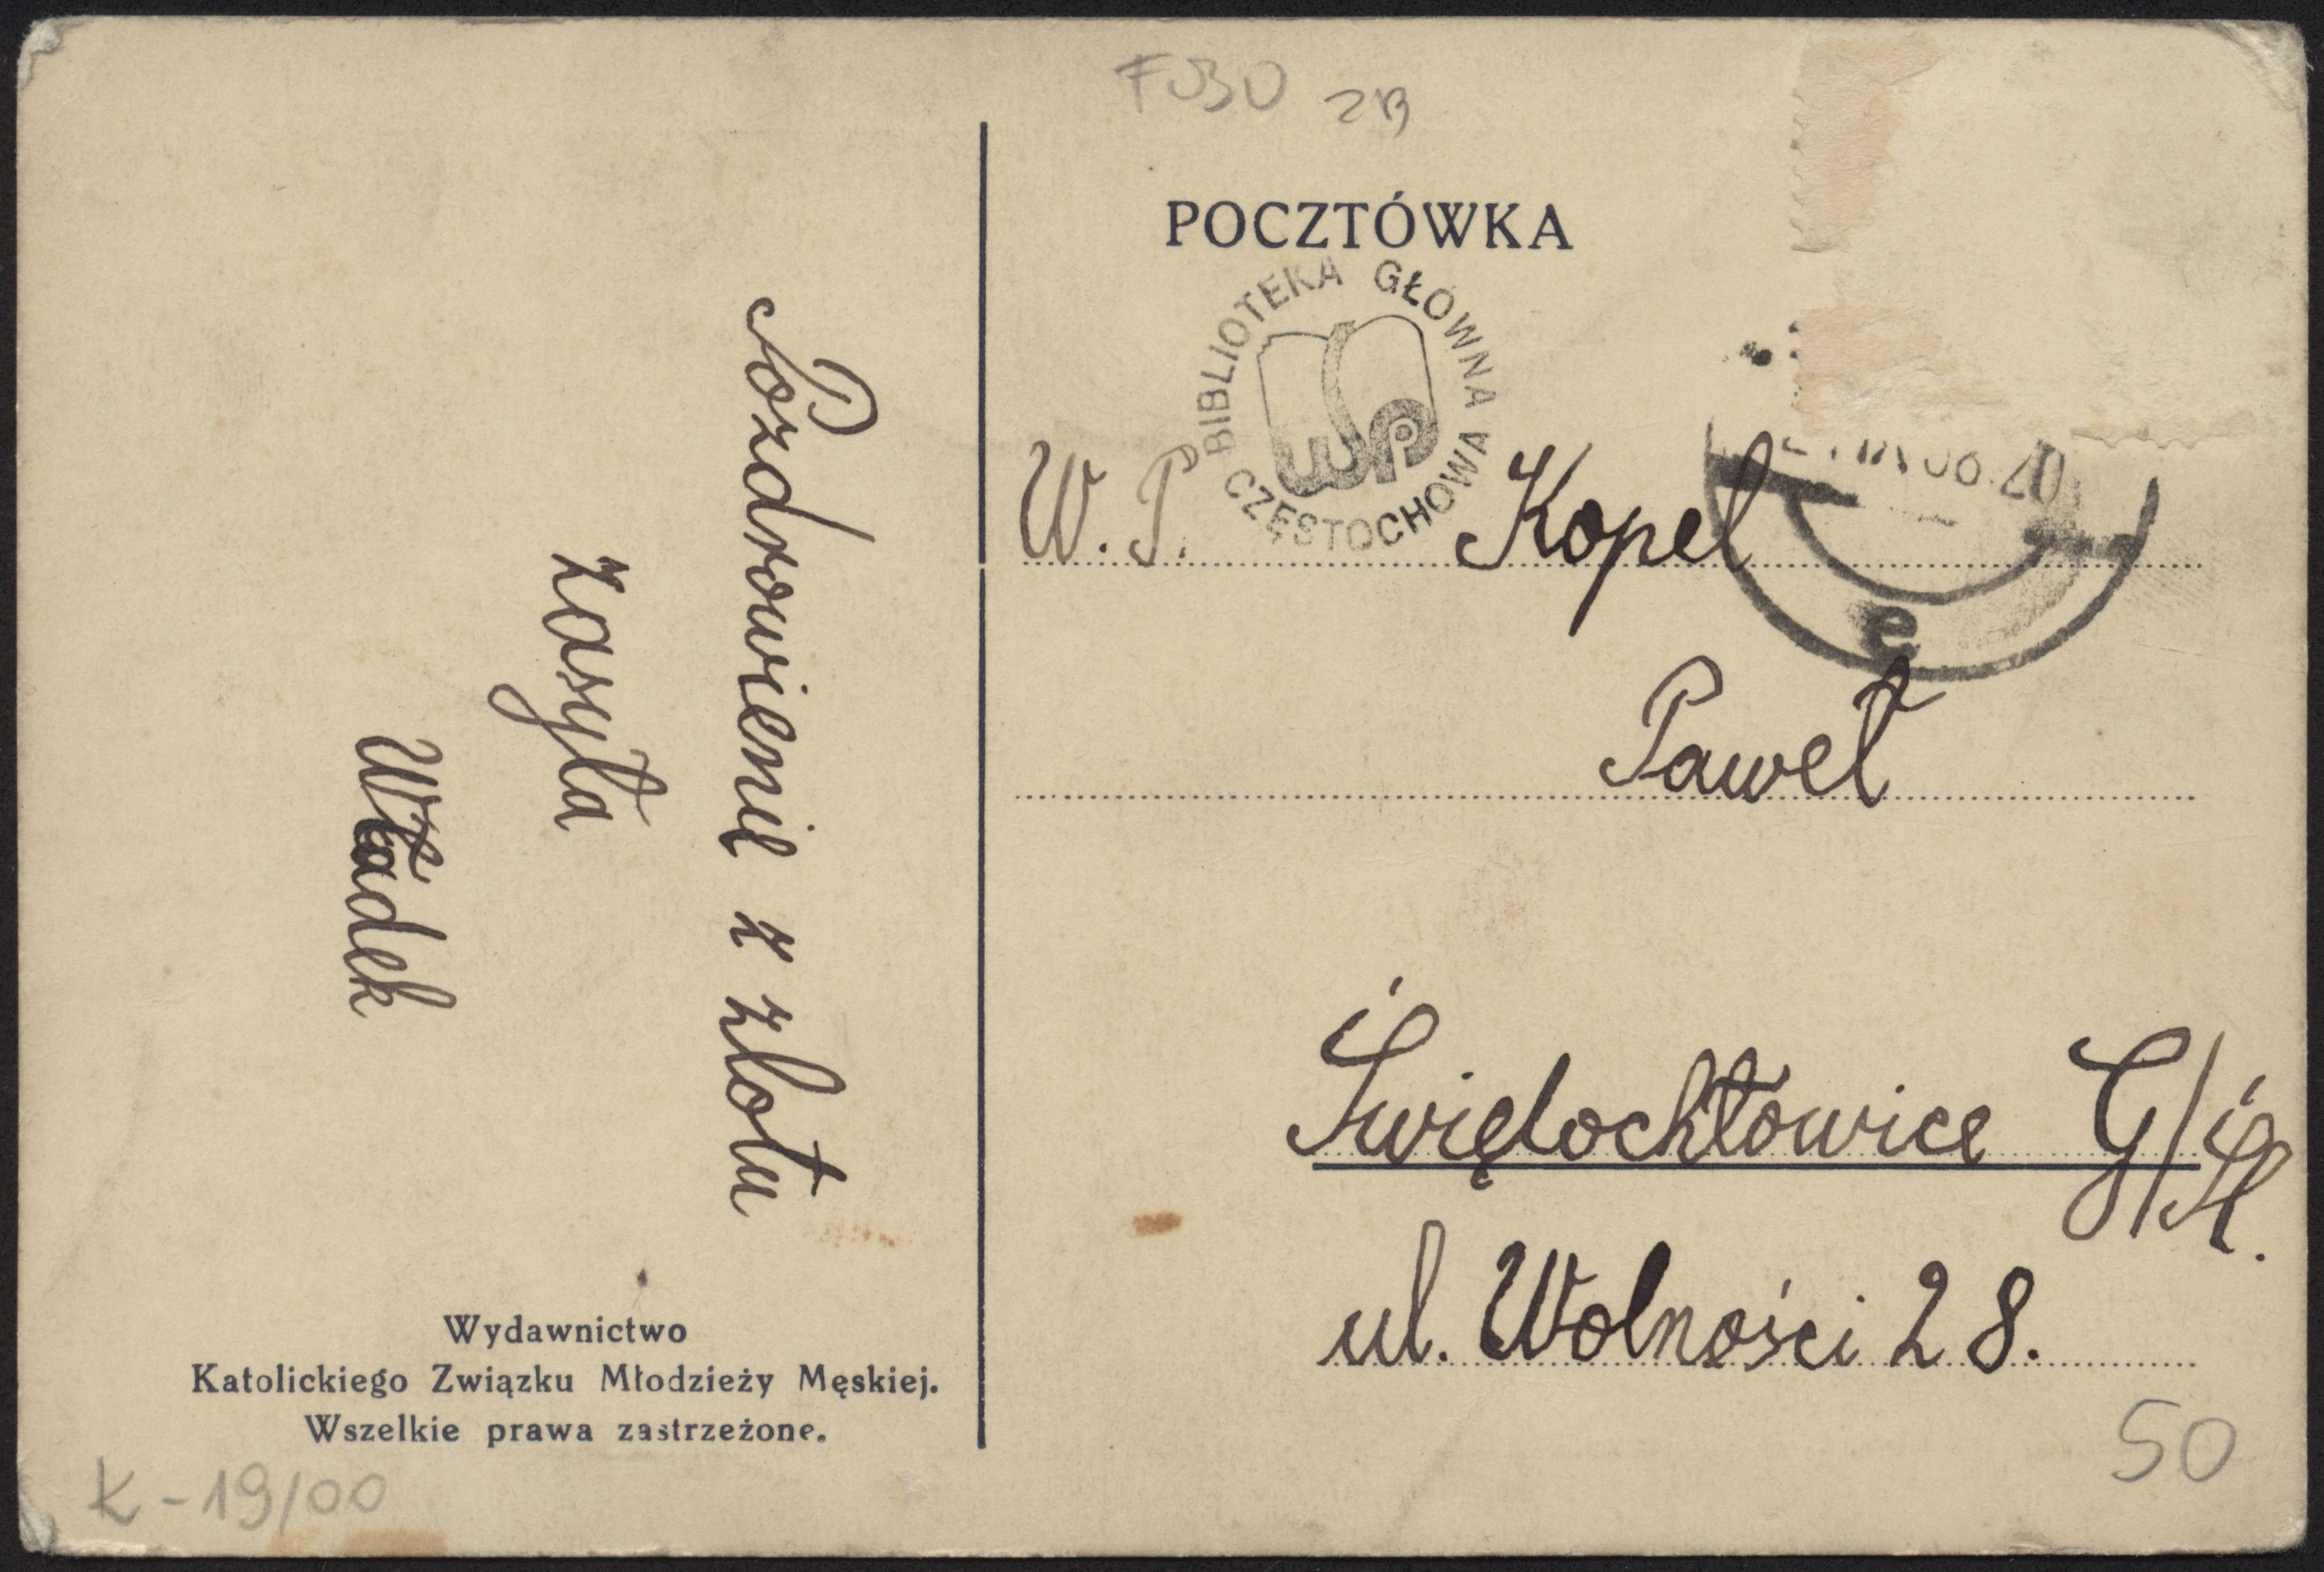 POCZTÓWKA
BIBLIOTEKA GŁÓWNA
WSP
CZĘSTOCHOWA
Pozdrowienie z zlotu
zasyła
Władek
W. P. Kopel
Paweł
Świętochłowice G/Śl.
ul. Wolności 28.
Wydawnictwo
Katolickiego Związku Młodzieży Męskiej.
Wszelkie prawa zastrzeżone.
K-19/00
50
e